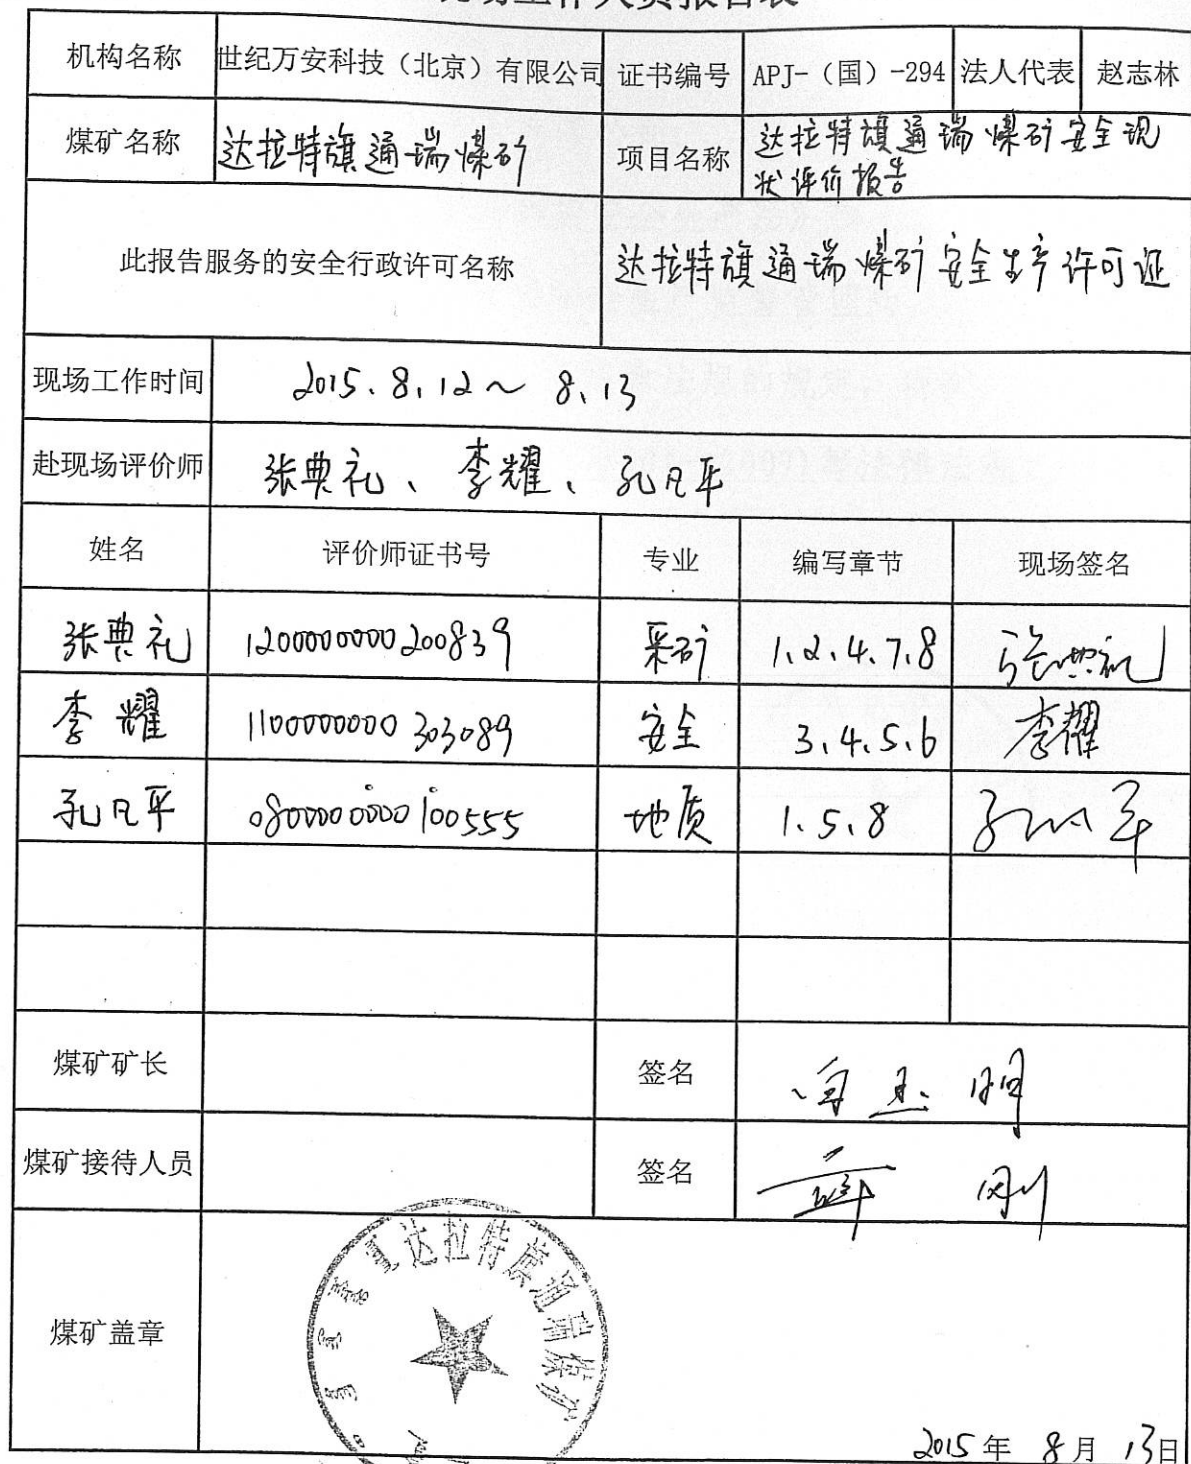 现场工作人员报告表
机构名称 世纪万安科技（北京）有限公司 证书编号 APJ-（国）-294 法人代表 赵志林
煤矿名称 达拉特旗通瑞煤矿 项目名称 达拉特旗通瑞煤矿安全现
状评价报告
此报告服务的安全行政许可名称 达拉特旗通瑞煤矿安全生产许可证
现场工作时间 2015.8.12～8.13
赴现场评价师 张典礼、李耀、孔凡平
姓名 评价师证书号 专业 编写章节 现场签名
张典礼 1200000000200839 采矿 1.2.4.7.8 张典礼
李耀 1100000000303089 安全 3.4.5.6 李耀
孔凡平 0800000000100555 地质 1.5.8 孔凡平
煤矿矿长 签名 明
煤矿接待人员 签名 薛刚
达拉特旗通瑞煤矿
煤矿盖章
2015年8月13日